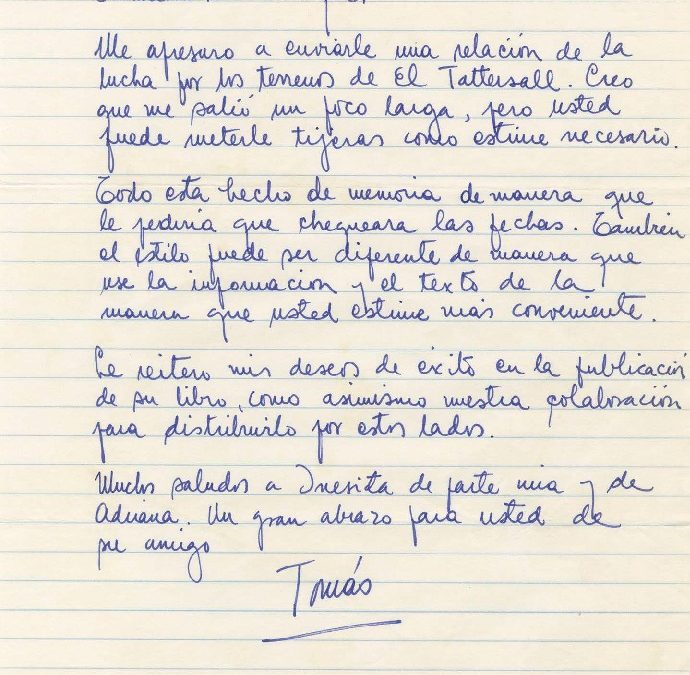 Me apresuro a enviarle una relación de la
lucha por los terrenos de El Tattersall. Creo
que me salió un poco larga, pero usted
puede meterle tijeras como estime necesario.
Todo esta hecho de memoria de manera que
le pediria que chequeara las fechas. También
el estilo puede ser diferente de manera que
use la informacion y el texto de la
manera que usted estime más conveniente.
Le reitero mis deseos de exito en la publicación
de su libro, como asimismo nuestra colaboración
para distribuirlo por estos lados.
Muchos saludos a Inesita de parte mia y de
Adriana. Un gran abrazo para usted de
su amigo
Tomás